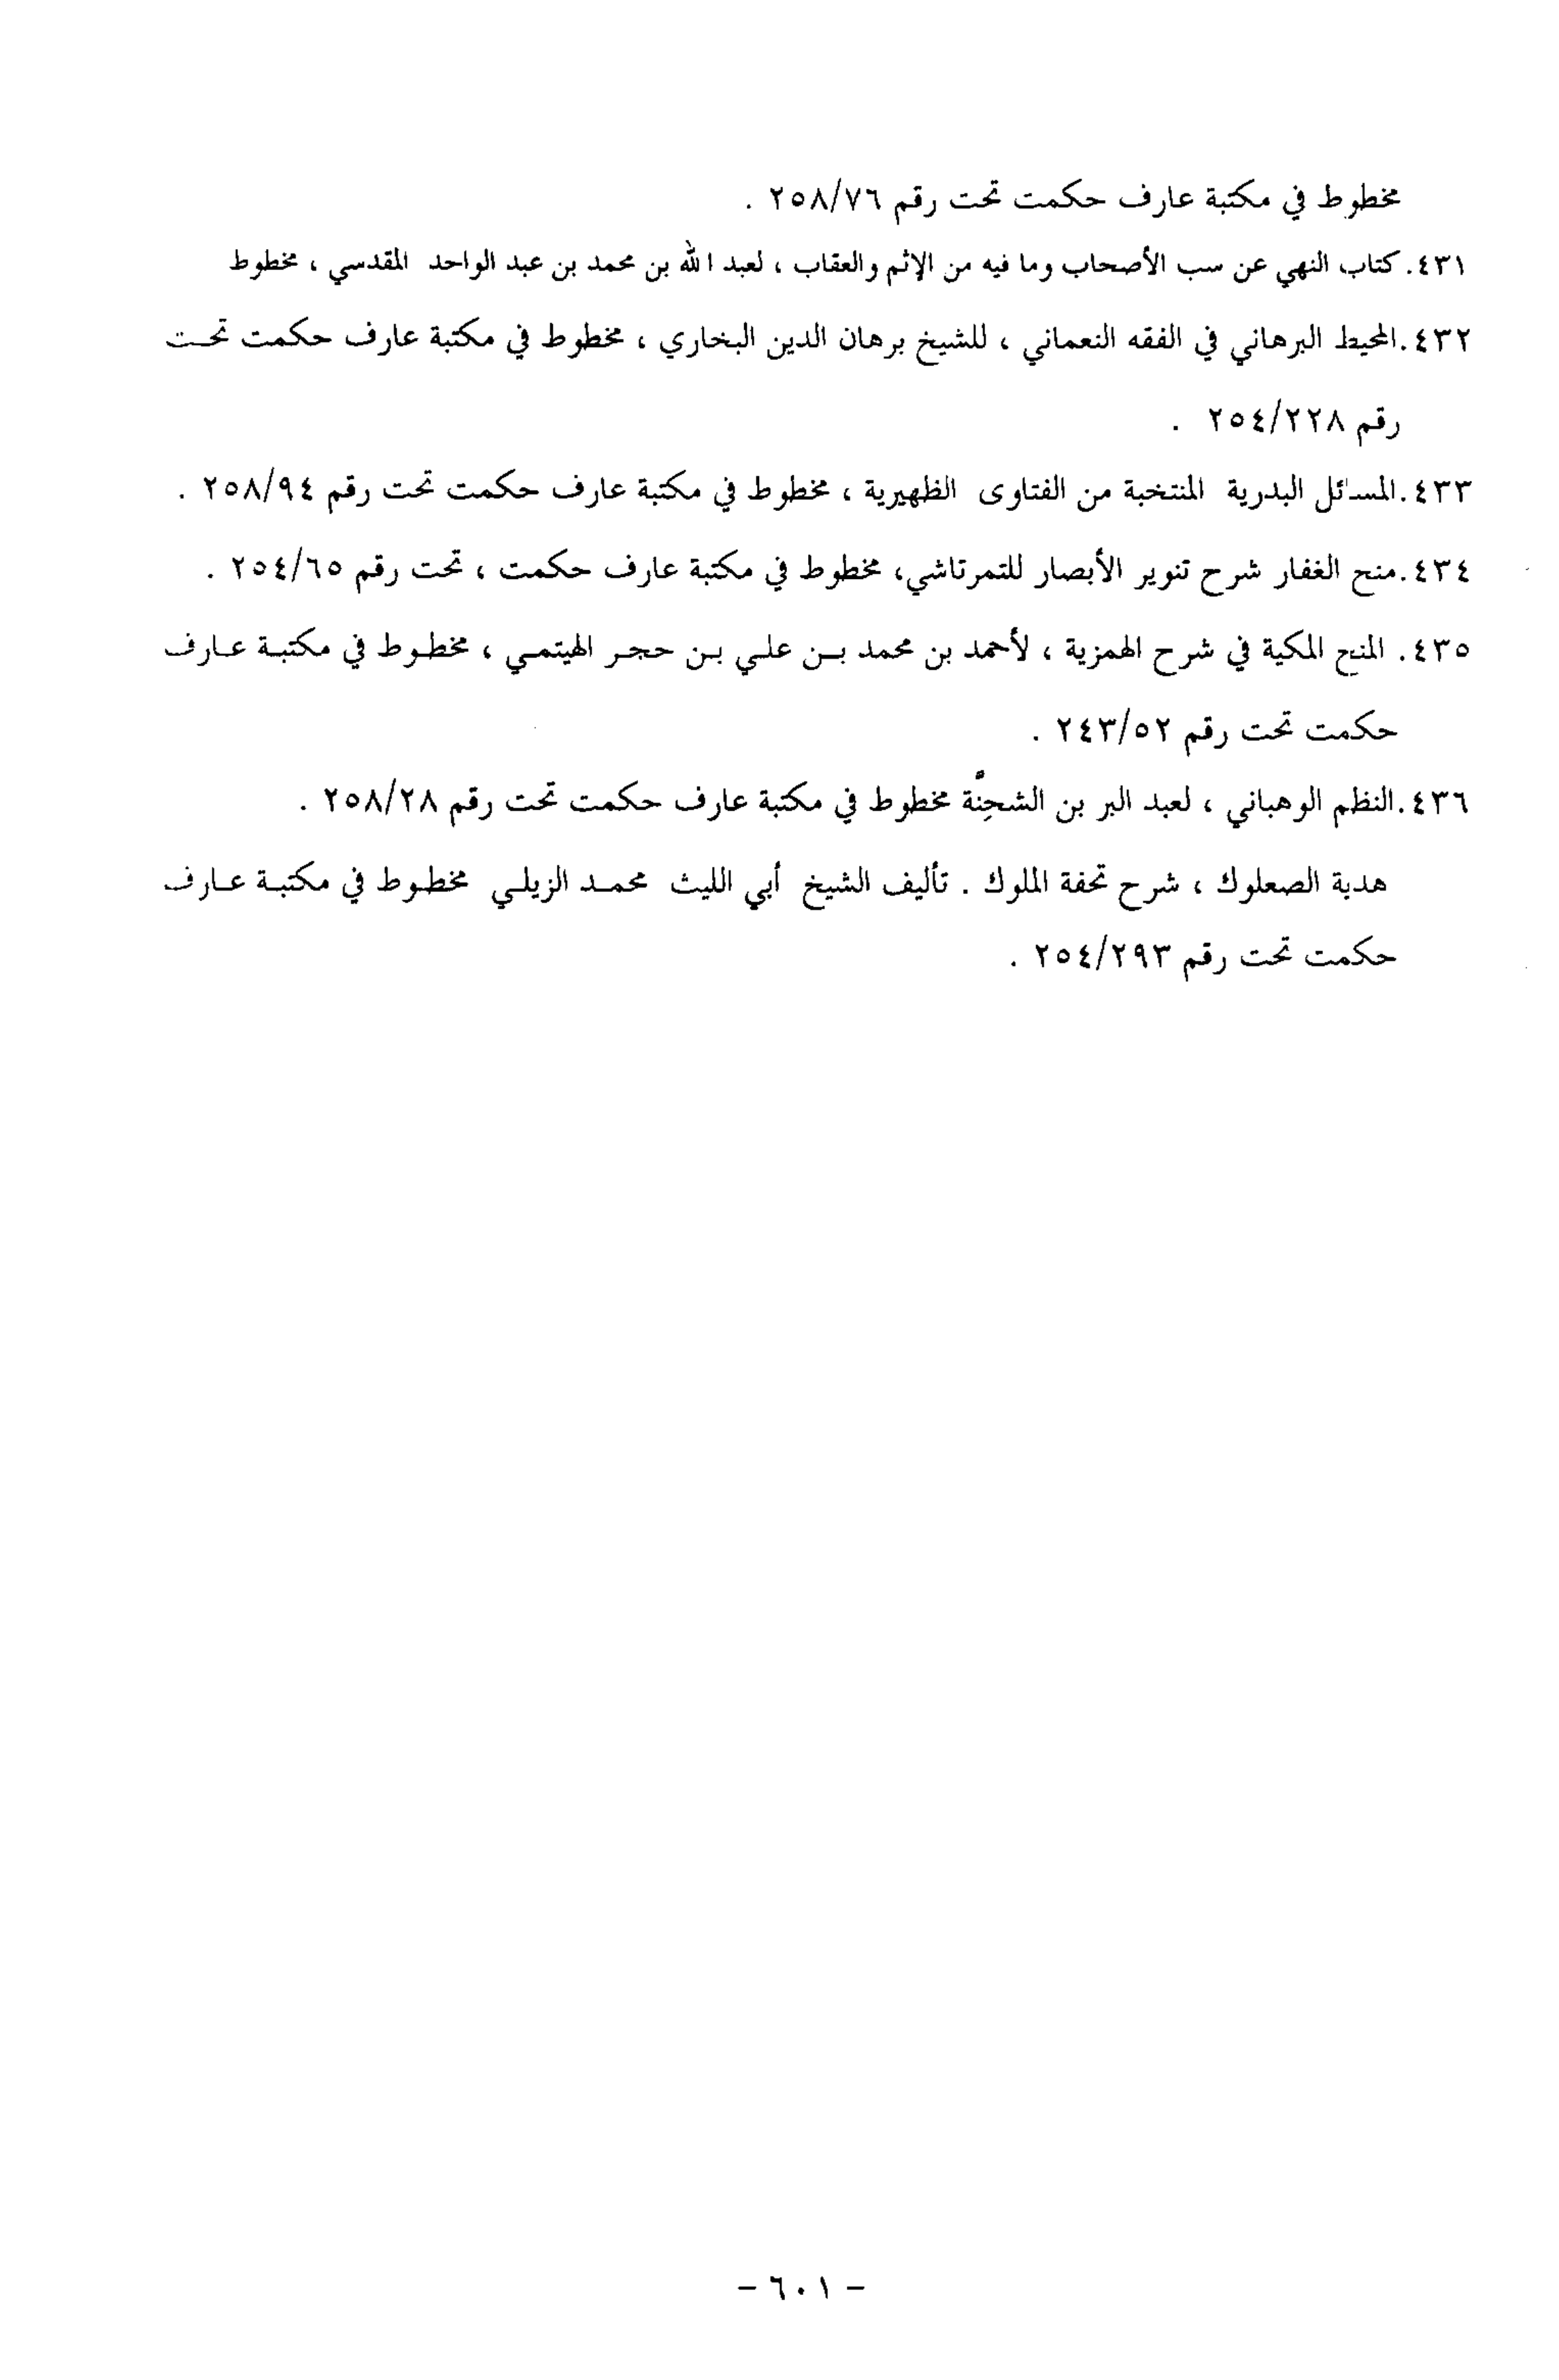 مخطوط في مكتبة عارف حكمت تحت رقم ٢٥٨/٧٦ .
٤٣١. كتاب النهي عن سب الأصحاب وما فيه من الإثم والعقاب ، لعبد الله بن محمد بن عبد الواحد المقدسي ، مخطوط
٤٣٢. المحيط البرهاني في الفقه النعماني ، للشيخ برهان الدين البخاري ، مخطوط في مكتبة عارف حكمت تحت
رقم ٢٥٤/٢٢٨ .
٤٣٣. المسائل البدرية المنتخبة من الفتاوى الظهيرية ، مخطوط في مكتبة عارف حكمت تحت رقم ٢٥٨/٩٤ .
٤٣٤. منح الغفار شرح تنوير الأبصار للتمرتاشي، مخطوط في مكتبة عارف حكمت ، تحت رقم ٢٥٤/٦٥ .
٤٣٥. المنح المكية في شرح الهمزية ، لأحمد بن محمد بن علي بن حجر الهيتمي ، مخطوط في مكتبة عارف
حكمت تحت رقم ٢٤٣/٥٢ .
٤٣٦. النظم الوهباني ، لعبد البر بن الشحِنْة مخطوط في مكتبة عارف حكمت تحت رقم ٢٥٨/٢٨ .
هدية الصعلوك ، شرح تحفة الملوك . تأليف الشيخ أبي الليث محمد الزيلي مخطوط في مكتبة عارف
حكمت تحت رقم ٢٥٤/٢٩٣ .
- ٦٠١ -